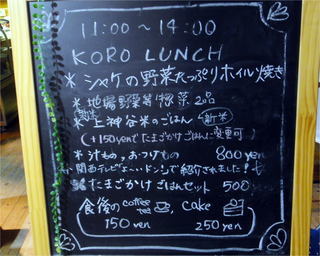 11:00~14:00
KORO LUNCH
* シャケの野菜たっぷりホイル焼き
* 地場野菜等惣菜2品
* 上神谷米のごはん 新米
(+150yenでたまごかけごはんに変更可)
* 汁もの, おつけもの 800yen
関西テレビよ~いドンで紹介されました!
たまごかけごはんセット 500
食後の coffee tea, cake
150yen 250yen